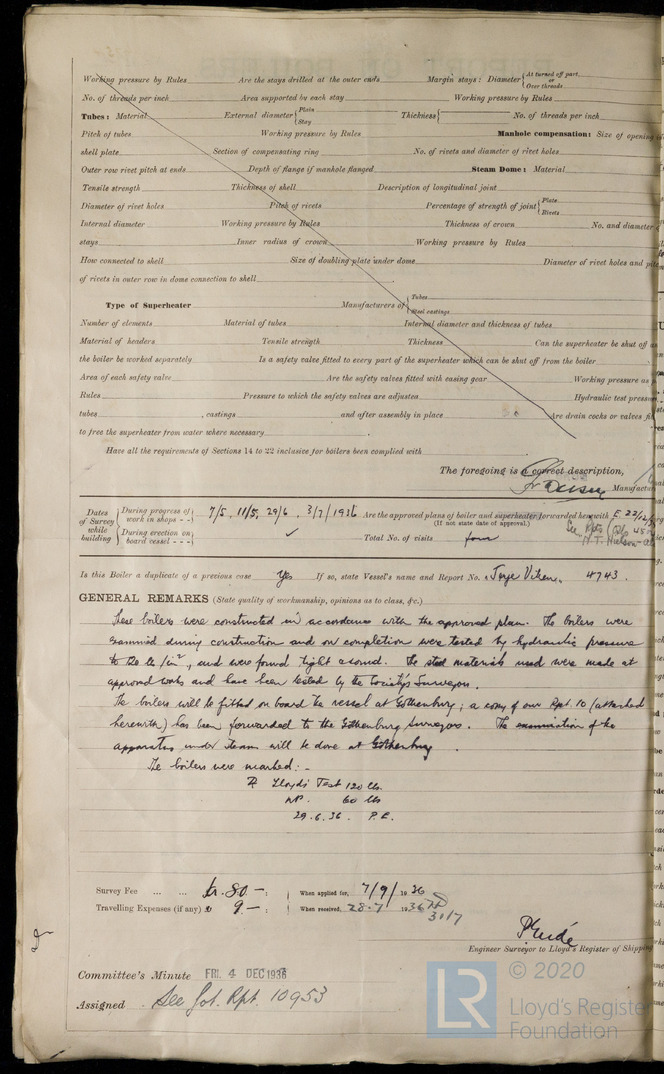 Working pressure by Rules Are the stays drilled at the outer ends Margin stays: Diameter { At turned off part, or Over threads
No. of threads per inch Area supported by each stay Working pressure by Rules
Tubes: Material External diameter { Plain Stay Thickness { No. of threads per inch
Pitch of tubes Working pressure by Rules Manhole compensation: Size of opening
shell plate Section of compensating ring No. of rivets and diameter of rivet holes
Outer row rivet pitch at ends Depth of flange if manhole flanged Steam Dome: Material
Tensile strength Thickness of shell Description of longitudinal joint
Diameter of rivet holes Pitch of rivets Percentage of strength of joint { Plate Rivets
Internal diameter Working pressure by Rules Thickness of crown No. and diameter
stays Inner radius of crown Working pressure by Rules
How connected to shell Size of doubling plate under dome Diameter of rivet holes and
of rivets in outer row in dome connection to shell
Type of Superheater Manufacturers of { Tubes Steel castings
Number of elements Material of tubes Internal diameter and thickness of tubes
Material of headers Tensile strength Thickness Can the superheater be shut off
the boiler be worked separately Is a safety valve fitted to every part of the superheater which can be shut off from the boiler
Area of each safety valve Are the safety valves fitted with easing gear Working pressure as
Rules Pressure to which the safety valves are adjusted Hydraulic test
tubes , castings and after assembly in place Are drain cocks or valves
to free the superheater from water where necessary
Have all the requirements of Sections 14 to 22 inclusive for boilers been complied with
The foregoing is a correct description,
Dates of Survey while building { During progress of work in shops - - } 7/5, 11/5, 29/6, 3/7/1936 Are the approved plans of boiler and superheater forwarded herewith
(If not state date of approval.)
During erection on board vessel - - - Total No. of visits four
Is this Boiler a duplicate of a previous case Yes If so, state Vessel's name and Report No. "Terje Viken" 4743.
GENERAL REMARKS (State quality of workmanship, opinions as to class, &c.)
These boilers were constructed in accordance with the approved plan. The boilers were
examined during construction and on completion were tested by hydraulic pressure
to 120 lb/in², and were found tight & sound. The steel materials used were made at
approved works and have been tested by the Society's Surveyors.
The boilers will be fitted on board the vessel at Gothenburg; a copy of our Rpt. 10 (attached
herewith) has been forwarded to the Gothenburg Surveyors. The examination of the
apparatus under steam will be done at Gothenburg.
The boilers were marked:-
Lloyds Test 120 lbs.
WP. 60 lbs
29.6.36. P.E.
Survey Fee ... ... kr. 80.- : When applied for, 7/9/1936
Travelling Expenses (if any) £ 9.- : When received, 28.7 1936 31/7
Engineer Surveyor to Lloyd's Register of Shipping
Committee's Minute FRI. 4 DEC 1936
Assigned See Got. Rpt. 10953
LR
© 2020
Lloyd's Register
Foundation